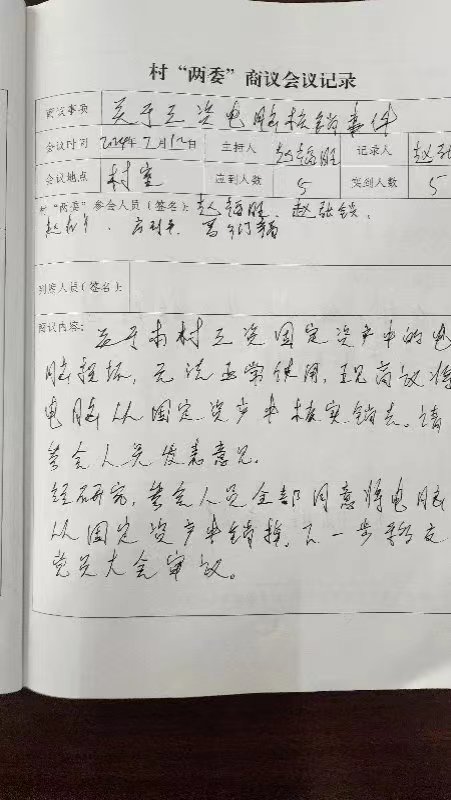 村“两委”商议会议记录
商议事项 关于三资电脑核销事件
会议时间 2024年7月12日 主持人 记录人 赵张
会议地点 村室 应到人数 5 实到人数 5
村“两委”参会人员(签名): 赵 赵张锁、
列席人员(签名):
商议内容: 关于本村三资固定资产中的电
脑损坏,无法正常使用,现商议将
电脑从固定资产中核实销去。请
参会人员发表意见.
经研究,参会人员全部同意将电脑
从固定资产中销掉,下一步移交
党员大会审议。